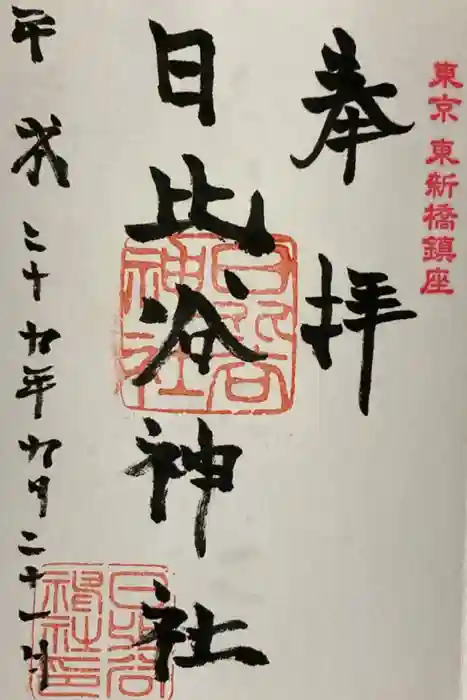 東京 東新橋鎮座
奉拝
日比谷神社
日比谷神社
平成二十九年九月二十一日